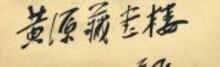 黄源藏书楼